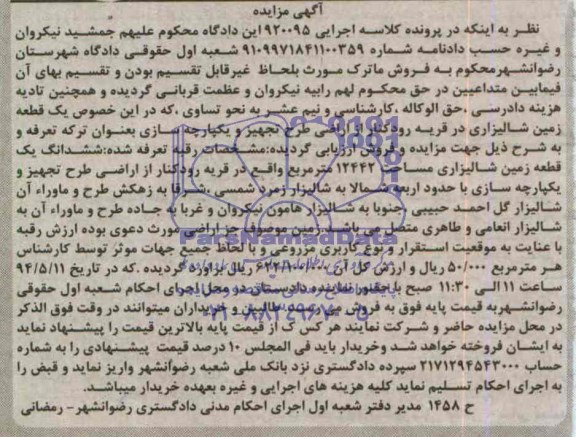 آگهی مزایده
نظر به اینکه در پرونده کلاسه اجرایی ۹۲۰۰۹۵این دادگاه محکوم علیهم جمشید نیکروان
و غیره حسب دادنامه شماره ۹۱۰۹۹۷۱۸۴۱۱۰۰۳۵۹ شعبه اول حقوقی دادگاه شهرستان
رضوانشهرمحکوم به فروش ماترک مورث بلحاظ غیرقابل تقسیم بودن و تقسیم بهای آن
فیمابین متداعیین در حق محکوم لهم رابیه نیکروان و عظمت قربانی گردیده و همچنین تادیه
هزینه دادرسی ،حق الوکاله ،کارشناسی و نیم عشر به نحو تساوی ،که در این خصوص یک قطعه
زمین شالیزاری در قریه رودکنار از اراضی طرح تجهیز و یکپارچه سازی بعنوان ترکه تعرفه و
به شرح ذیل جهت مزایده و فروش ارزیابی گردیده:مشخصات رقبه تعرفه شده:ششدانگ یک
قطعه زمین شالیزاری مساحت ۱۲۴۴۲ مترمربع واقع در قریه رودکنار از اراضی طرح تجهیز و
یکپارچه سازی با حدود اربعه شمالا به شالیزار زمرد شمسی ،شرقا به زهکش طرح و ماوراء آن
شالیزار گل احمد حبیبی ،جنوبا به شالیزار هامون نیکروان و غربا به جاده طرح و ماوراء آن به
شالیزار انعامی و طاهری متصل می باشد.زمین موصوف جز اراضی مورث دعوی بوده ارزش رقبه
با عنایت به موقعیت استقرار و نوع کاربری مزروعی و با لحاظ جمیع جهات موثر توسط کارشناس
هر مترمربع ۵۰/۰۰۰ ریال و ارزش کل آن ۶۲۲/۱۰۰/۰۰۰ ریال برآورد گردیده .که در تاریخ ۹۴/۵/۱۱
ساعت ۱۱الی ۱۱:۳۰ صبح با حضور نماینده دادستان در محل اجرای احکام شعبه اول حقوقی
رضوانشهربه قیمت پایه فوق به فروش می رسد طالبین و خریداران میتوانند در وقت فوق الذکر
در محل مزایده حاضر و شرکت نمایند هر کس ک از قیمت پایه بالاترین قیمت را پیشنهاد نماید
به ایشان فروخته خواهد شد وخریدار باید فی المجلس ۱۰ درصد قیمت پیشنهادی را به شماره
حساب ۲۱۷۱۲۹۴۵۴۳۰۰۰ سپرده دادگستری نزد بانک ملی شعبه رضوانشهر واریز نماید و قبض را
به اجرای احکام تسلیم نماید کلیه هزینه های اجرایی و غیره بعهده خریدار میباشد.
ح ۱۴۵۸ مدیر دفتر شعبه اول اجرای احکام مدنی دادگستری رضوانشهر- رمضانی
ParsNamadData
۰۲۱-۸۸۳۴۹۶۷۰-۵